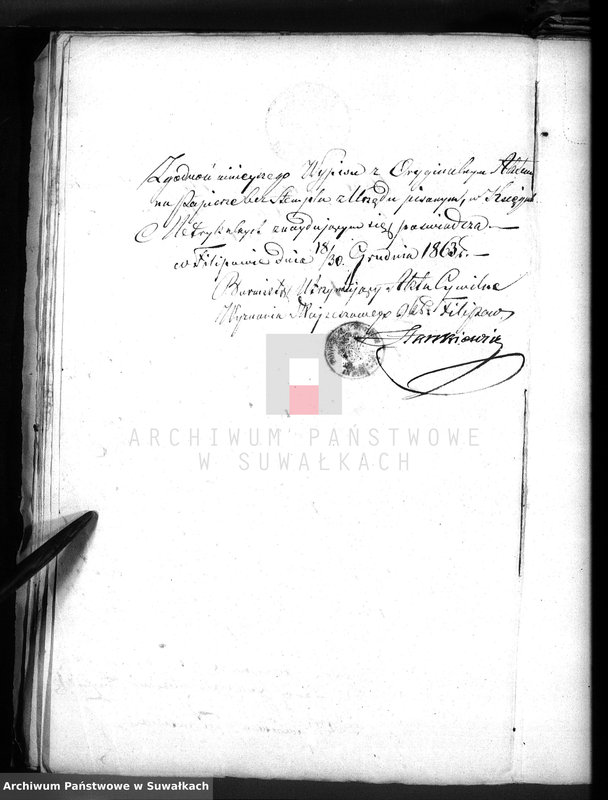 Zgodność ninieyszego Wypisu z Oryginalnym Aktem
na Papierze bez Stempla z Urzędu pisanym, w Księgach
Metrykalnych znaydującym się poświadcza.—
w Filipowie dnia 18/30. Grudnia 1863 r.—
Burmistrz Utrzymujący Akta Cywilne
Wyznania Mojżeszowego Filipow
Stankiewicz
ARCHIWUM PAŃSTWOWE
W SUWAŁKACH
Archiwum Państwowe w Suwałkach